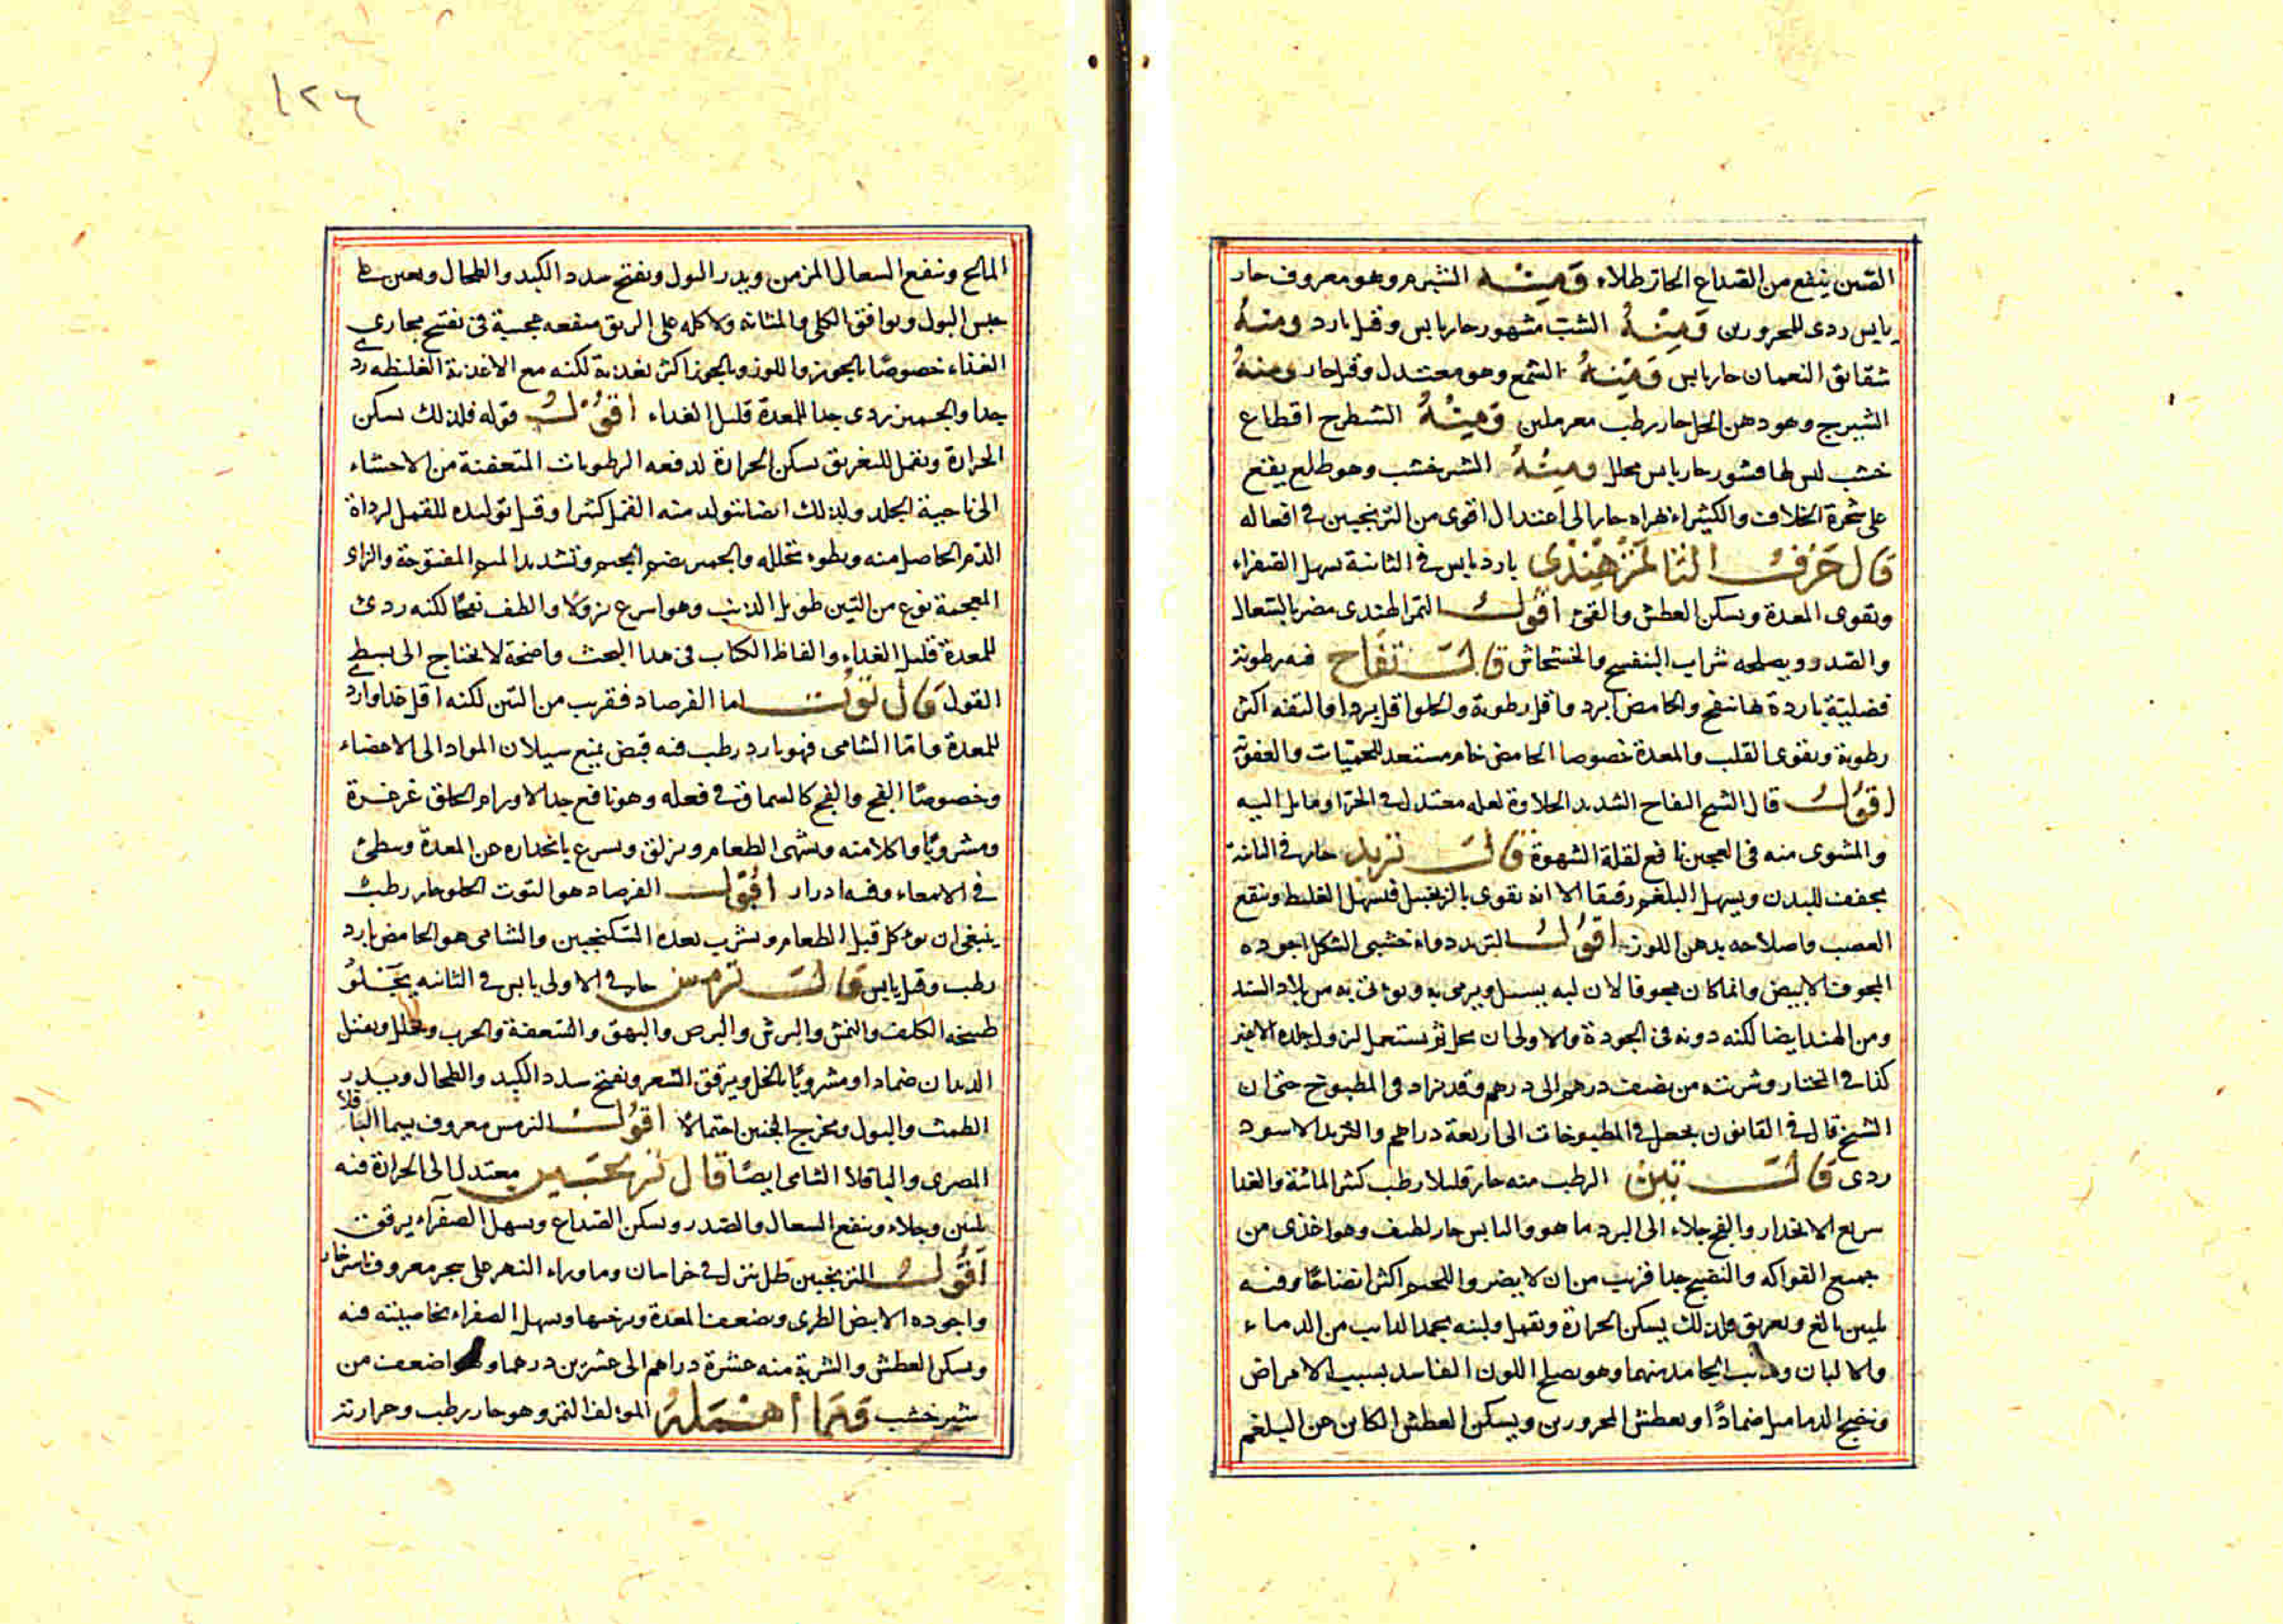 الصين ينفع من الصداع الحار طلاء ومنه الشبرم وهو معروف حار
يابس ردى للمحرورين ومنه الشبت مشهور حار يابس وقيل بارد ومنه
شقايق النعمان حار يابس ومنه الشمع وهو معتدل وقيل حار ومنه
الشيرج وهو دهن الحل حار رطب مغر ملين ومنه الشيطرج اقطاع
خشب لها قشور حار يابس محلل ومنه الشيرخشب وهو طل يقع
على شجرة الخلاف والكثيراء بهراه حار الى اعتدال اقوى من الترنجبين في افعاله
قال حرف التا تمر هندي بارد يابس في الثانية يسهل الصفراء
ويقوى المعدة ويسكن العطش والقئ اقول التمر الهندى مضر بالسعال
والصدر ويصلحه شراب البنفسج والخشخاش قال تفاح فيه رطوبة
فضلية باردة لها نفخ والحامض ابرد واقل رطوبة والحلو اقل بردا والتفه اكثر
رطوبة ويقوى القلب والمعدة خصوصا الحامض خام مستعد للحميات والعفونة
اقول قال الشيخ التفاح الشديد الحلاوة لعله معتدل في الحر او مايل اليه
والمشوى منه في العجين نافع لقلة الشهوة قال تربد حار في الثانية
يجفف للبدن ويسهل البلغم رقيقا الا انه يقوى بالزنجبيل فيسهل الغليظ وينفع
العصب واصلاحه بدهن اللوز اقول التربد دواء خشبى الشكل اجوده
المجوف الابيض وانما كان مجوفا لان لبه يسل ويرمى به ويؤتى به من بلاد السند
ومن الهند ايضا لكنه دونه في الجودة والاولى ان يحك ثم يستعمل ليزول جلده الاغبر
كذا في المختار وشربته من نصف درهم الى درهم وقد تزاد في المطبوخ حتى ان
الشيخ قال في القانون يجعل في المطبوخات الى اربعة دراهم والتربد الاسود
ردى قال تين الرطب منه حار قليلا رطب كثير المائية والغذا
سريع الانحدار والفج جلاء الى البرد ما هو واليابس حار لطيف وهو اغذى من
جميع الفواكه والنضيج جدا قريب من ان لا يضر واللحيم اكثر انضاجا وفيه
تليين بالغ وتعريق ولذلك يسكن الحرارة ويقمل ولبنه يجمد الذايب من الدماء
والالبان ويذيب الجامد منهما وهو يصلح اللون الفاسد بسبب الامراض
وينضج الدماميل ضمادا ويعطش المحرورين ويسكن العطش الكاين عن البلغم
١٢٦
المالح وينفع السعال المزمن ويدر البول ويفتح سدد الكبد والطحال ويعين على
حبس البول ويوافق الكلى والمثانه ولاكله على الريق منفعه عجيبة في تفتيح مجارى
الغذاء خصوصا بالجوز واللوز وبالجوز اكثر تغذية لكنه مع الاغذية الغليظه ردى
جدا والجميز ردى جدا للمعدة قليل الغذاء اقول قوله فلذلك يسكن
الحرارة ويقمل للتعريق يسكن الحرارة لدفعه الرطوبات المتعفنة من الاحشاء
الى ناحية الجلد ولذلك ايضا يتولد منه القمل كثيرا وقيل توليده للقمل لرداة
الدم الحاصل منه وبطوء تحلله والجميز بضم الجيم وتشديد الميم المفتوحة والزاء
المعجمة نوع من التين طويل الذنب وهو اسرع نزولا والطف نفخا لكنه ردى
للمعدة قليل الغذاء والفاظ الكتاب في هذا البحث واضحة لا يحتاج الى بسط
القول قال توت اما الفرصاد فقريب من التين لكنه اقل غذا واردى
للمعدة واما الشامى فهو بارد رطب فيه قبض يمنع سيلان المواد الى الاعضاء
وخصوصا الفج والفج كالسماق في فعله وهو نافع جدا لاورام الحلق غرغرة
ومشروبا واكلا منه ويشهى الطعام ويزلق ويسرع بانحداره عن المعدة ويبطئ
في الامعاء وفيه ادرار اقول الفرصاد هو التوت الحلو حار رطب
ينبغى ان يوكل قبل الطعام ويشرب بعده السكنجبين والشامى هو الحامض بارد
رطب وقيل يابس قال ترمس حار في الاولى يابس في الثانيه يجلو
طبيخه الكلف والنمش والبرش والبرص والبهق والسعفة والجرب ويحلل ويقتل
الديدان ضمادا ومشروبا بالخل ويرقق الشعر ويفتح سدد الكبد والطحال ويدر
الطمث والبول ويخرج الجنين احتمالا اقول الترمس معروف يسما الباقلا
المصرى والباقلا الشامى ايضا قال ترنجبين معتدل الى الحرارة فيه
تليين وجلاء وينفع السعال والصدر ويسكن الصداع ويسهل الصفراء برفق
اقول الترنجبين طل ينزل في خراسان وماوراء النهر على شجر معروف
واجوده الابيض الطرى ويضعف المعدة ويرخيها ويسهل الصفراء بخاصيته فيه
ويسكن العطش والشربة منه عشرة دراهم الى عشرين درهما وهو اضعف من
شيرخشب ومما أهمله المولف التمر وهو حار رطب وحرارته